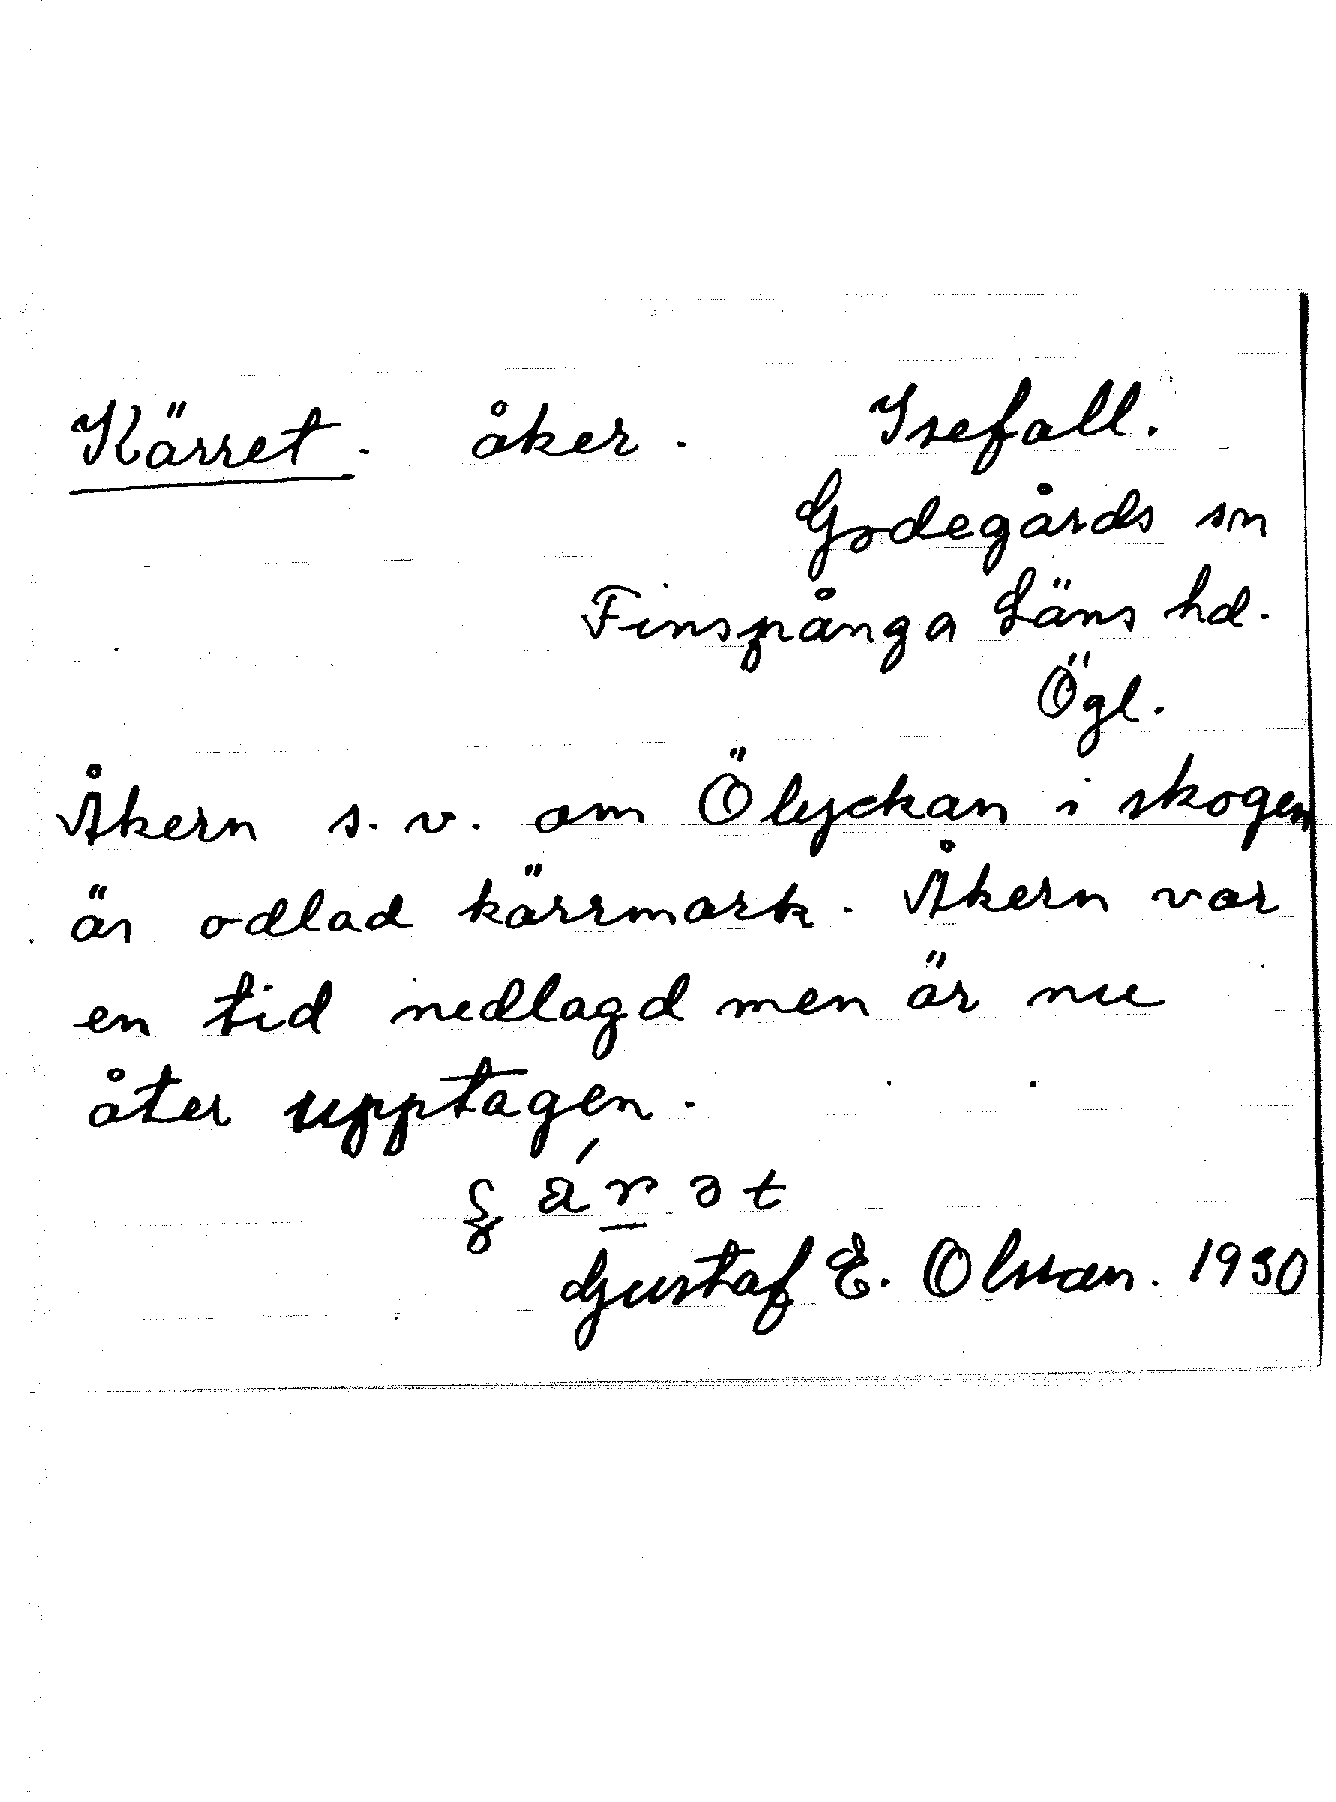 Kärret. åker. Isefall.
Godegårds sn
Finspånga Läns hd.
Ögl.
Åkern s.v. om Ölyckan i skogen
är odlad kärrmark. Åkern var
en tid nedlagd men är nu
åter upptagen.
Gustaf E. Olsson. 1930